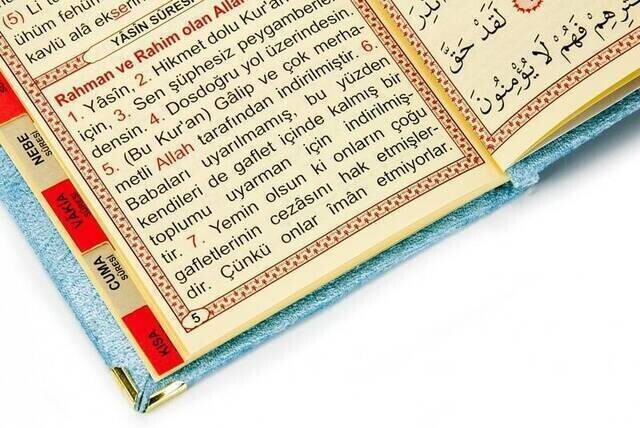 (5) Li
ühüm fehüm
kavlü alâ ekserihim
YÂSÎN SÛRESİ
Rahman ve Rahim olan Allah
1. Yâsîn, 2. Hikmet dolu Kur'an
için, 3. Sen şüphesiz peygamberler-
densin. 4. Dosdoğru yol üzerindesin.
5. (Bu Kur'an) Gâlip ve çok merha-
metli Allah tarafından indirilmiştir. 6.
Babaları uyarılmamış, bu yüzden
kendileri de gaflet içinde kalmış bir
toplumu uyarman için indirilmiş-
tir. 7. Yemin olsun ki onların çoğu
gafletlerinin cezâsını hak etmişler-
dir. Çünkü onlar imân etmiyorlar.
5
NEBE
SÛRESİ
VÂKIA
SÛRESİ
CUMA
SÛRESİ
KISA
لَقَدْ حَقَّ
فَهُمْ لَا يُؤْمِنُونَ